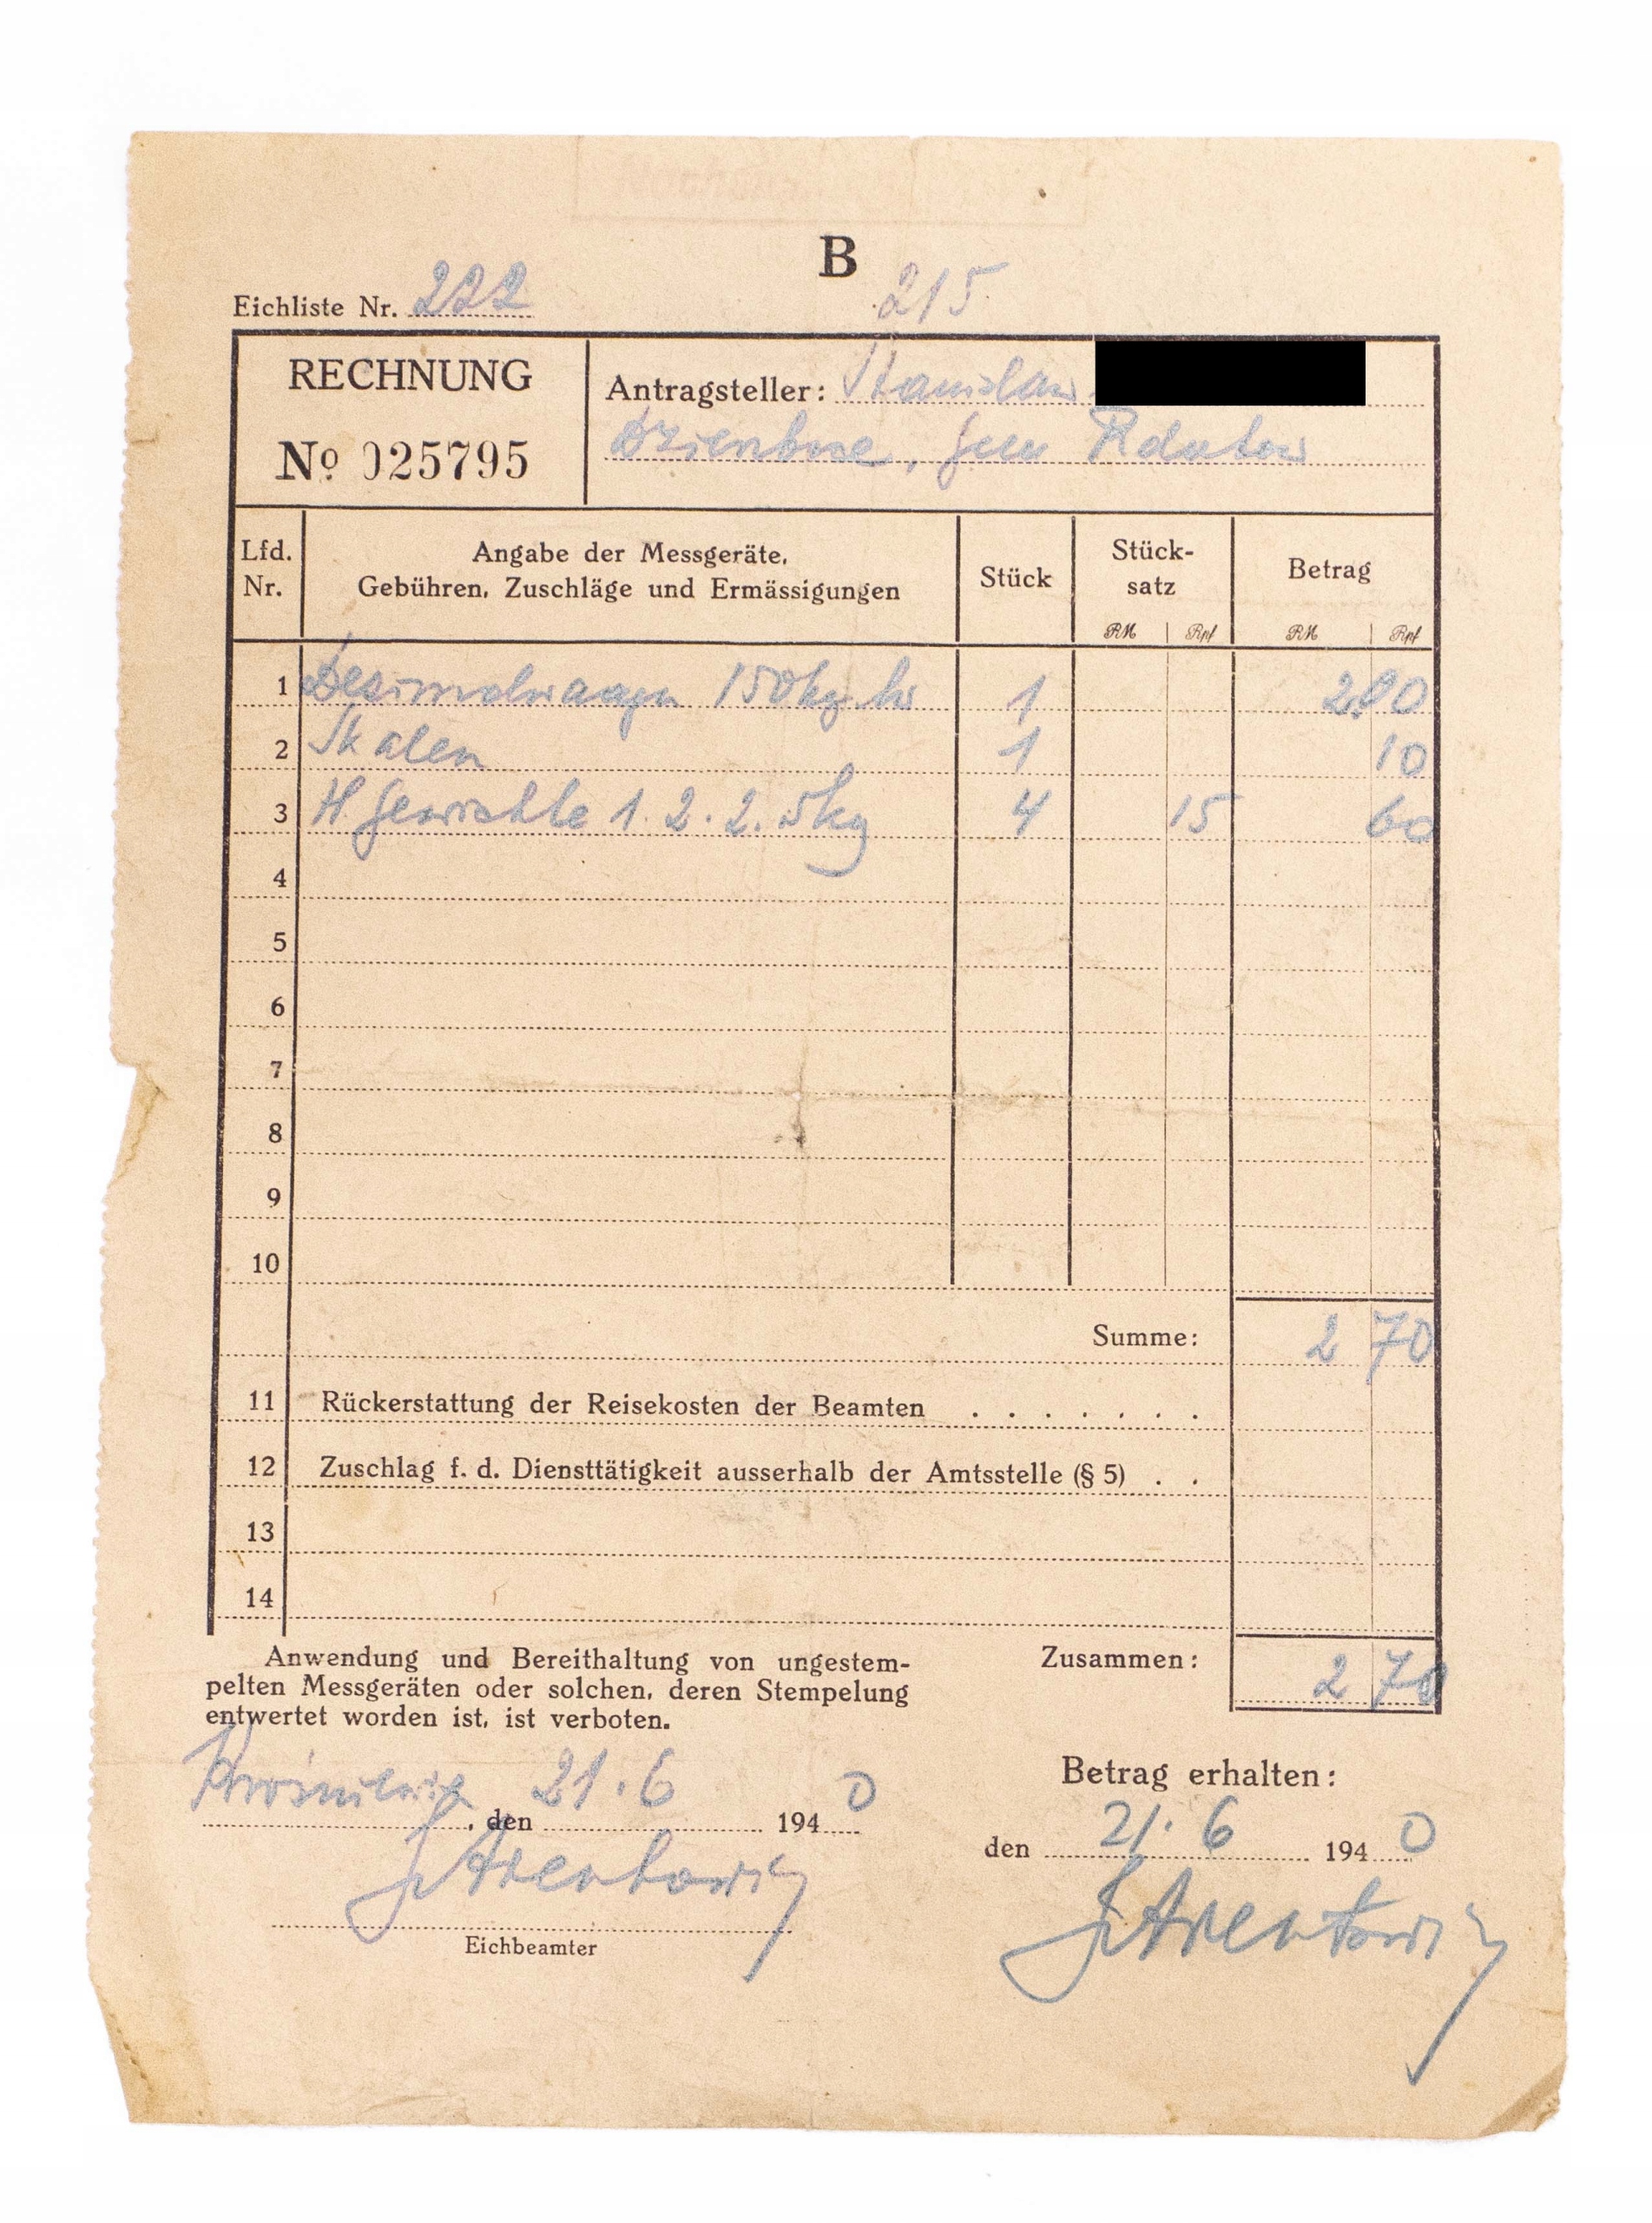 B
Eichliste Nr. 222
215
RECHNUNG
Antragsteller: Stanislaw
No 025795
gem
Lfd. Nr.
Angabe der Messgeräte,
Gebühren, Zuschläge und Ermässigungen
Stück
Stück-
satz
Betrag
RM Rpf RM Rpf
1 Dezimalwaagen 150 kg 1 2.00
2 Skalen 1 10
3 H. Gewichte 1. 2. 2. 5kg 4 15 60
4
5
6
7
8
9
10
Summe: 2 70
11 Rückerstattung der Reisekosten der Beamten . . . . . . .
12 Zuschlag f. d. Diensttätigkeit ausserhalb der Amtsstelle (§ 5) . .
13
14
Anwendung und Bereithaltung von ungestem-
pelten Messgeräten oder solchen, deren Stempelung
entwertet worden ist, ist verboten.
Zusammen: 2 70
, den 21.6 1940
Eichbeamter
Betrag erhalten:
den 21.6 1940